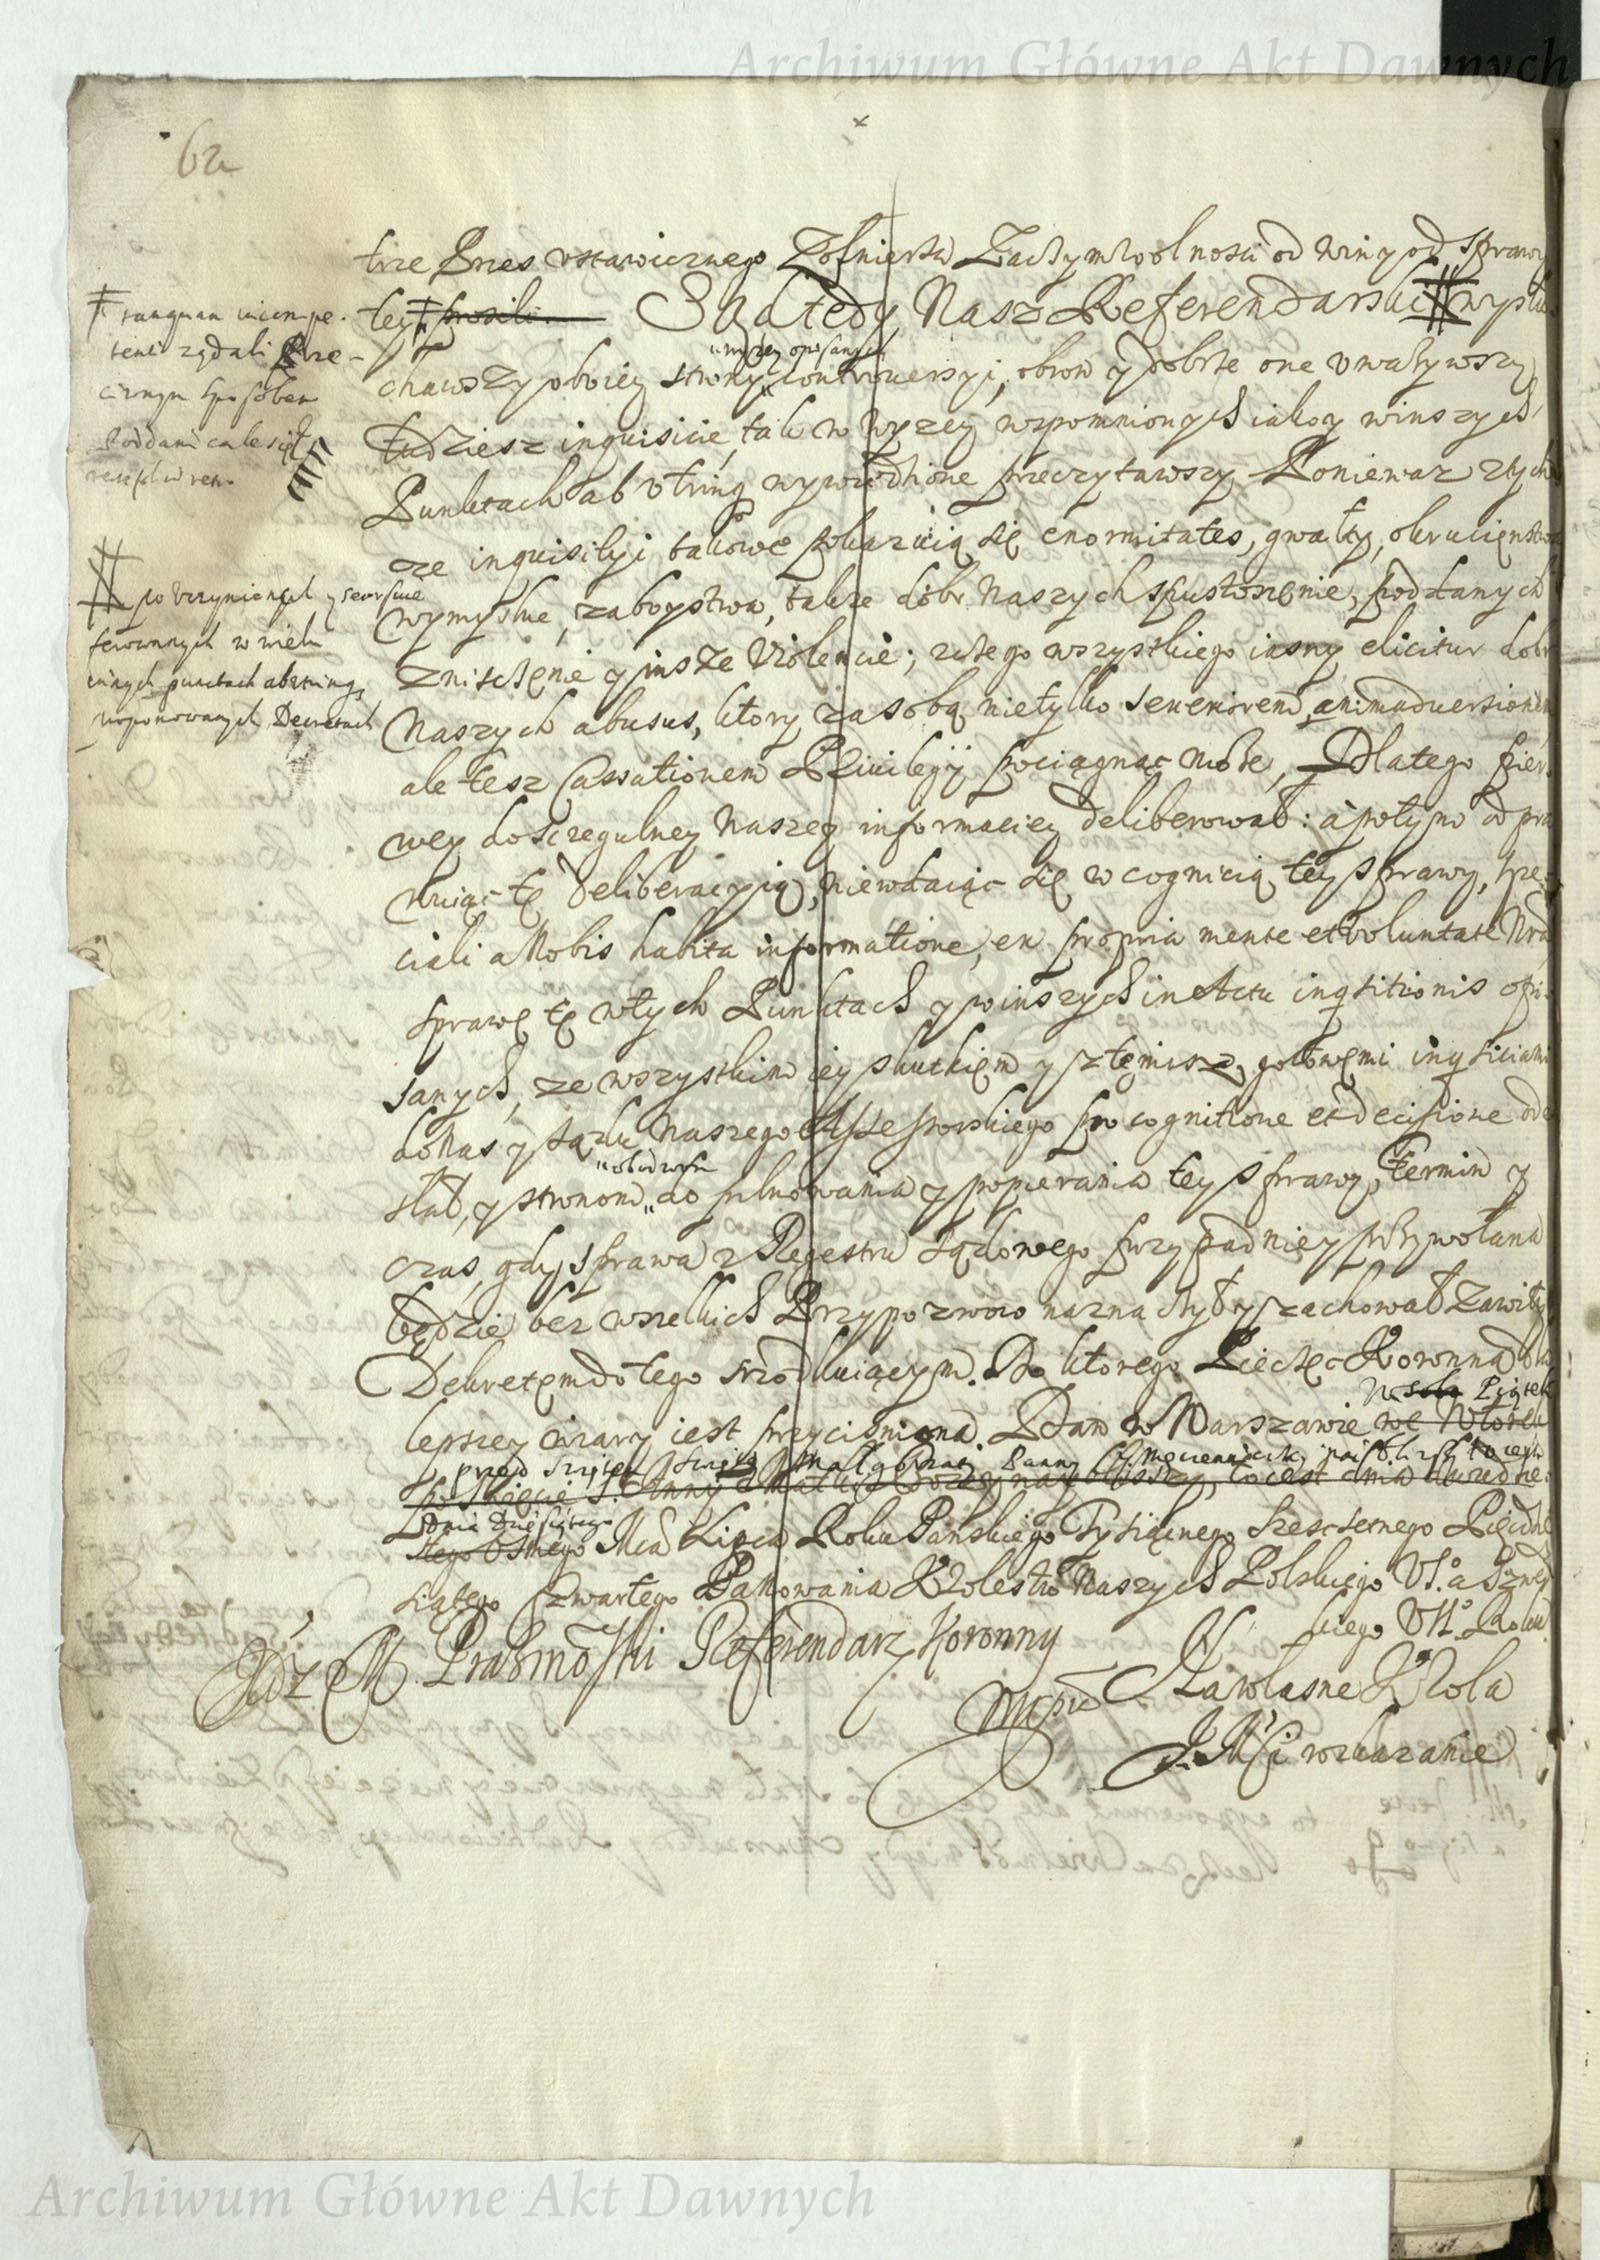 Archiwum Główne Akt Dawnych
62
trze Przes vstawicznego Zołnierza Zaczym wolnosci od winy od sprawy
tey prosili. Sąd tedy Nasz Referendarski wysłu
wyzey opisanych
chawszy oboiey strony controuersyi, obron y dobrze one vważywszy
tudziesz inquisicie, tak w wyzey wspomnionych iako y winszych
Punktach ab vtrinq wywiedzione przeczytawszy Poniewaz z tych
ze inquisityi takowe pokazuią się enormitates, gwałty, okrucięnstwa
wymyslne, zaboystwa, także dobr Naszych spustoszęnie, poddanych
zniszczęnie y insze Violencie; z czego wszystkiego iasny elicitur dobr
Naszych abusus, ktory za sobą nietylko seueriorem animaduersionem
ale tesz Cassationem Priuilegij pociągnąc może, Dlatego pier
wey do sczegulney Naszey informaciey deliberował: a potym odpra
wuiąc tę deliberacyią, niewdaiąc się w cognicią tey sprawy, spe
ciali a Nobis habita informatione, ex propria mente et voluntate Nra
sprawę tę w tych Punktach y winszych in Actu inqsitionis opi
sanych, ze wszystkim iey skutkięm y sztęmisz gotowęmi inqsiciami
do Nas y sądu Naszego Assessorskiego pro cognitione et decisione ode
obudwom
słał, y stronom do pilnowania y popierania tey sprawy, termin y
czas, gdy sprawa z Regestru sądowego przypadnie y przywołana
będzie bez wszelkich Przypozwow naznaczył y zachował Zawity
Dekretęm do tego srzodkuiącym. Do ktorego Pieczęc Koronna dla
lepszey wiary iest przycisniona. Dan w Warszawie we Wtorek
w Piątek
przed Swiętem Swiętey Małgorzaty Panny y Męczenniczki naiblizszy to iest
po Swięcie S. Anny Matki Bozey naybliszy, to iest dnia dwudzie
dnia Dziesiątego
stego Osmego Mca Lipca Roku Panskiego Tysiącnego Szescsetnego Pięcdzie
siątego Czwartego Panowania Krolestw Naszych Polskiego VI.o a Szwedz
kiego VII.o Roku
Jdz M Prazmowski Referendarz Koronny
mppr
Na własne Krola
J. Mści roskazanie
tanquam incompe-
tenti ządali prze-
ciwnym sposobem
Poddani cale się
po vczynionych y seorsiue
ferowanych w wielu
innych punctach ab vtrinq
proponowanych Decretach
Archiwum Główne Akt Dawnych